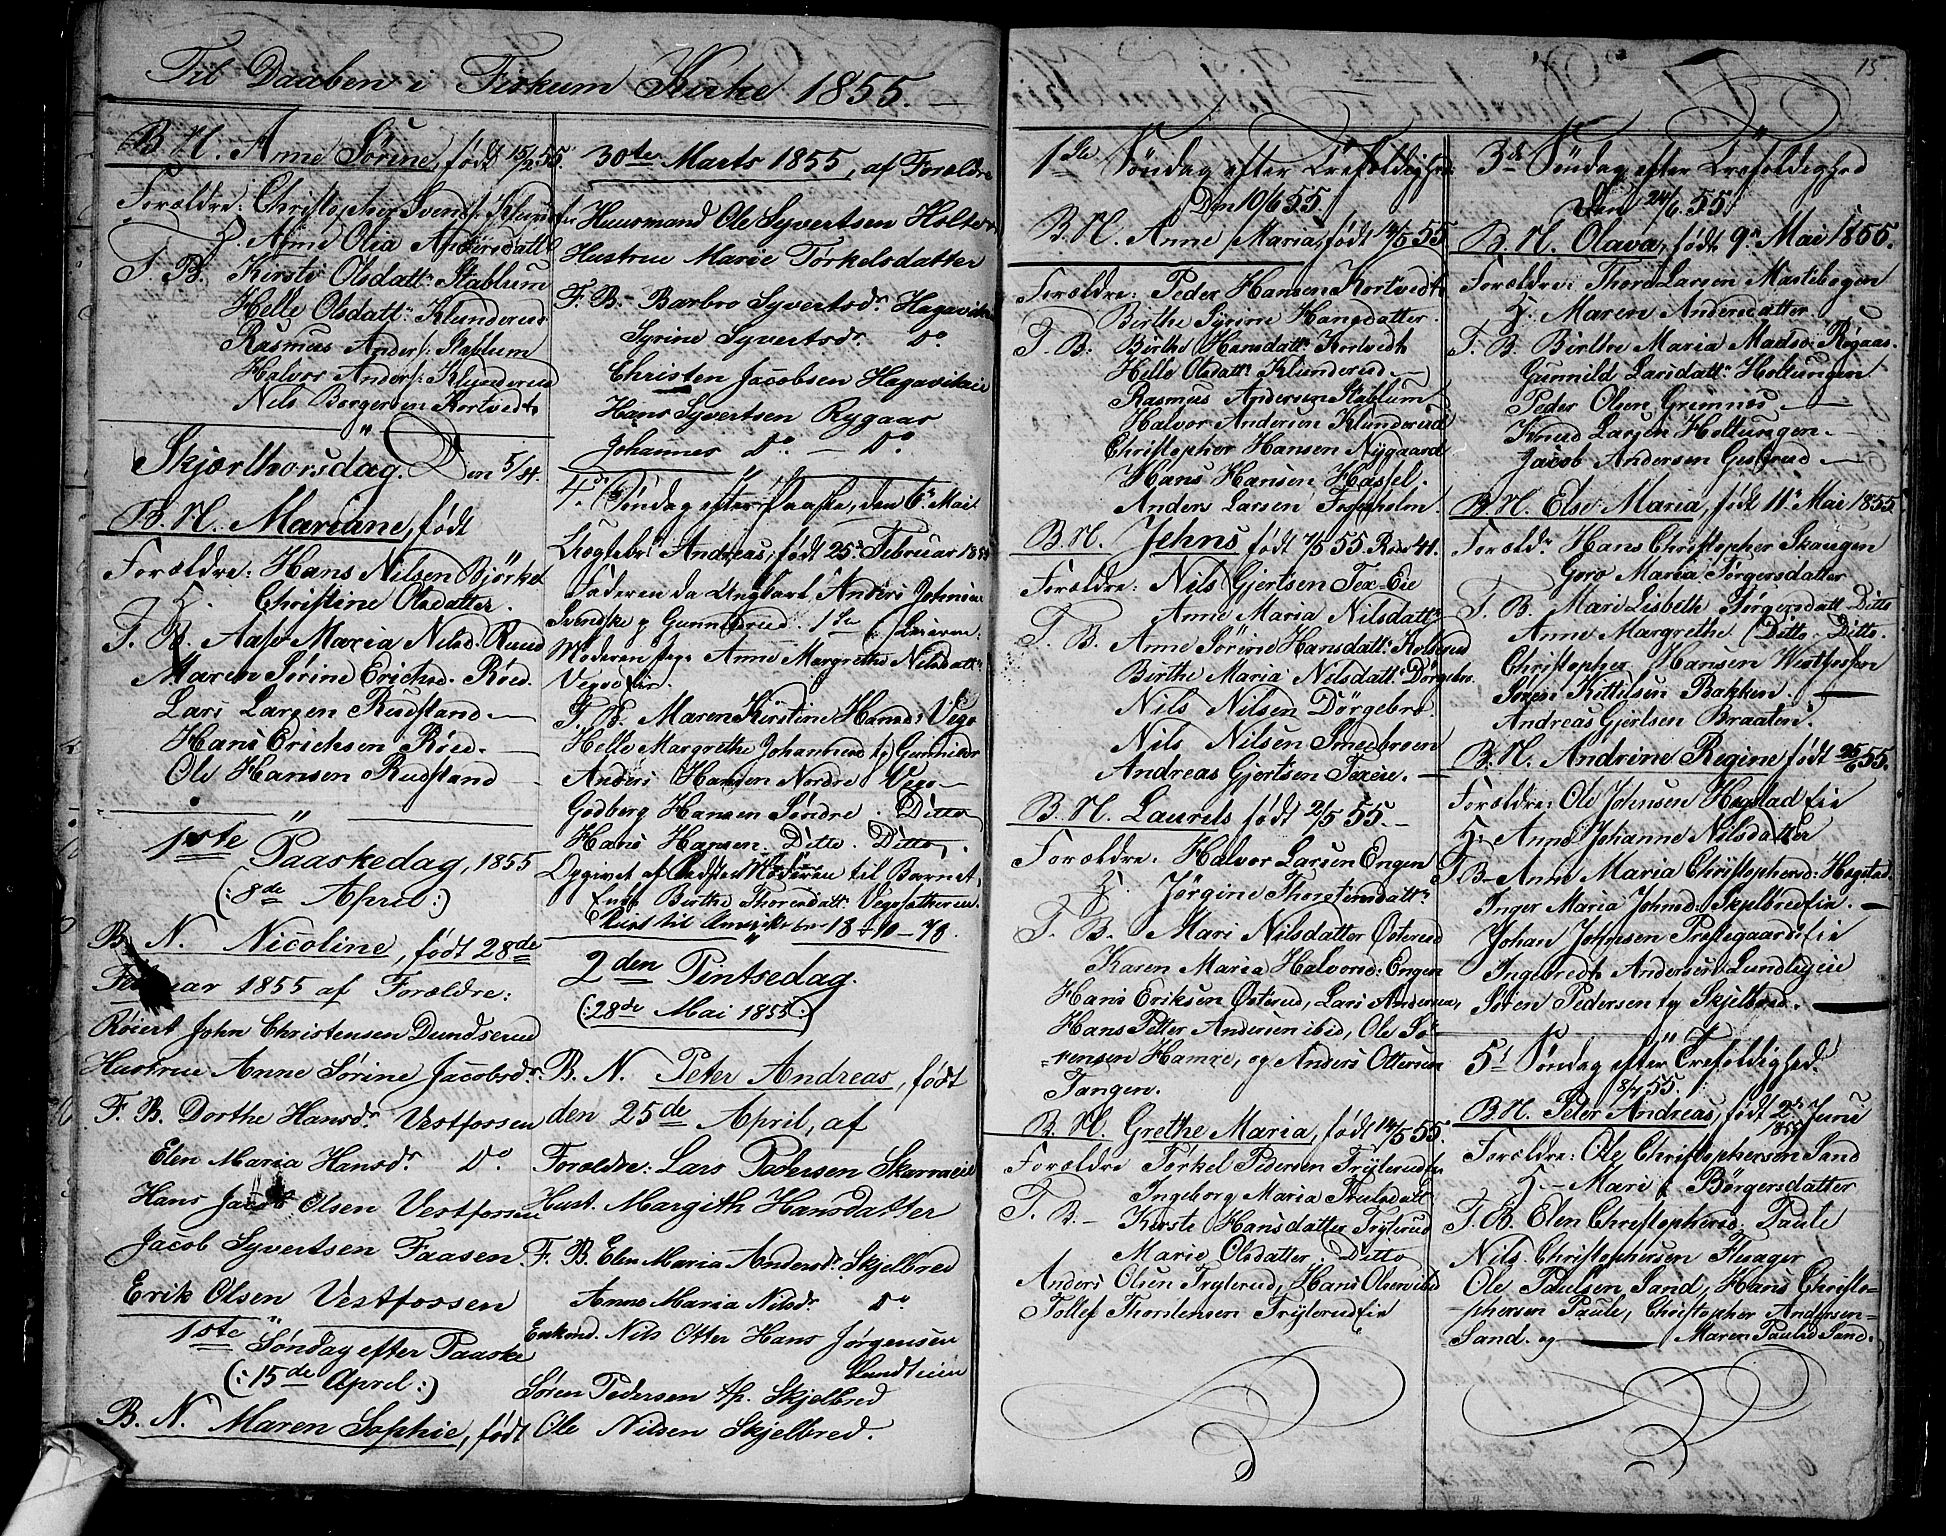 Til Daaben i Fiskum Kirke 1855.
B. N. Anne Sørine, født 15/2 55.
Forældre: Christopher Svends: Klunderfie
H. Anne Olia Andersdatt:
F. B. Kirsti Olsdatt: Stablum
Helle Olsdatt: Klunderud
Rasmus Anders: Stablum
Halvor Anders: Klunderud
Nils Borgersen Kortvedt
Skjærthorsdag. Den 5/4.
B. N. Mariane, født
Forældre: Hans Nilsen Bjørke
H. Christine Olsdatter.
F. B. Aase Maria Nilsd. Ruud
Maren Sørine Erichsd. Røed.
Lars Larsen Rudstand
Hans Erichsen Røed.
Ole Hansen Rudstand
1ste Paaskedag, 1855
(: 8de April :)
B. N. Nicoline, født 28de
Februar 1855 af Forældre:
Røiert John Christensen Dundserud
Hustrue Anne Sørine Jacobsdr.
F. B. Dorthe Hansdr. Vestfossen
Elen Maria Hansdr. Do
Hans Jacob Olsen Vestfossen
Jacob Syvertsen Faasen
Erik Olsen Vestfossen
1ste Søndag efter Paaske
(: 15de April :)
B. N. Maren Sophie, født
30te Marts 1855, af Forældre
Huusmand Ole Syvertsen Holter
Hustrue Marie Torkelsdatter
F. B. Barbro Syvertsdr. Hagavikeie
Syrine Syvertsdr. Do
Christen Jacobsen Hagavikeie
Hans Syvertsen Rygaas
Johannes Do — Do
4de Søndag efter Paaske, den 6te Mai
Uægtebr: Andreas, født 25de Februar 1855
Faderen da Ungkarl Anders Johnsen
Svendske p Gunnerud. 1ste Leierm:
Moderen pige Anne Margrethe Nilsdatt:
Vegoefie.
F. B. Maren Kirstine Hansd: Vego
Helle Margrethe Johannesd tp Gunnerud
Anders Hansen Nordre Vego
Godberg Hansen Søndre Ditto
Hans Hansen Ditto. Ditto.
Opgivet af Bedstemoderen til Barnet,
Enke Birthe Thorendatt: Vegosætheren.
Reist til Amerika 18
2den Pintsedag.
(: 28de Mai 1855 :)
B. N. Peter Andreas, født
den 25de April, af
Forældre: Lars Pedersen Skarraeie
Hust. Margith Hansdatter
F. B. Elen Maria Andersdr. Skjelbred
Anne Maria Nilsdr. Do
Enkemd. Nils Otter Hans Jørgensen
Lundteien
Søren Pedersen tp. Skjelbred
Ole Nilsen Skjelbred.
15.
1ste Søndag efter Trefoldighed:
Den 10/6 55.
B. N. Anne Maria, født 14/5 55
Forældre: Peder Hansen Kortvedt
Birthe Syrine Hansdatter.
F. B. Birthe Hansdatt: Kortvedt
Helle Olsdatt: Klunderud
Rasmus Andersen Stablum
Halvor Andersen Klunderud
Christopher Hansen Nygaard
Hans Hansen Hassel.
Anders Larsen Fossholm.
B. N. Jehns født 7/5 55
Forældre: Nils Gjertsen Tex-Eie
Anne Maria Nilsdatt:
F. B. Anne Sørine Hansdatt: Kolserud
Birthe Maria Nilsdatt: Dørgebro
Nils Nilsen Dørgebro.
Nils Nilsen Smedbroen
Andreas Gjertsen Texeie.
B. N. Laurets født 2/5 55.
Forældre: Halvor Larsen Engen
H. Jørgine Thorstensdatt:
F. B. Mari Nilsdatter Østerud
Karen Maria Halvorsd: Engen
Hans Eriksen Østerud, Lars Andersen,
Hans Petter Andersen ibid, Ole Sø-
rensen Hamre, og Anders Ottersen
Tangen.
B. N. Grethe Maria, født 14/5 55.
Forældre Torkel Pedersen Trylerudfie
Ingeborg Maria Trulsdatt:
F. B. Kirste Hansdatter Trylerud
Marie Olsdatter Ditto
Anders Olsen Trylerud, Hans Olsen ibid
Tollef Thorstensen Trylerudfie
3de Søndag efter Trefoldighed
Den 24/6 55.
B. N. Olava, født 9de Mai 1855.
Forældre: Thord Larsen Mastebogen
H: Maren Andersdatter.
F. B. Birthe Maria Madsd: Røgaas.
Gunnild Larsdatt: Holtungen
Peder Olsen Grimnes
Knud Larsen Holtungen.
Jacob Andersen Gislerud
B. N. Else Maria, født 11te Mai 1855
Foreld: Hans Christopher Skaugen
Goro Maria Jørgersdatter
F. B. Mari Lisbeth Jørgersdatt: Ditto
Anne Margrethe Ditto Ditto.
Christopher Hansen Westfossen
Søren Kittilsen Bakken.
Andreas Gjertsen Braaten.
B. N. Andrine Regine født 25/6 55.
Forældre: Ole Johnsen Hogstadfie
H: Anne Johanne Nilsdatter
F. B. Anne Maria Christophersd: Hogstad.
Inger Maria Johnsd: Skjelbredfie.
Johan Johnsen Prestegaardsfie
Ingebredt Andersen Lundteyeie
Søren Pedersen tp Skjelbred.
5te Søndag efter Trefoldighed.
8/7 55.
B. N. Peter Andreas, født 2de Juni
1855
Forældre: Ole Christophersen Sand
H. Mari Børgersdatter
F. B. Elen Christophersd: Paule
Nils Christophersen Flesager
Ole Paulsen Sand, Hans Christo-
phersen Paule, Christopher Andersen
Sand. og Maren Paulsd Sand.